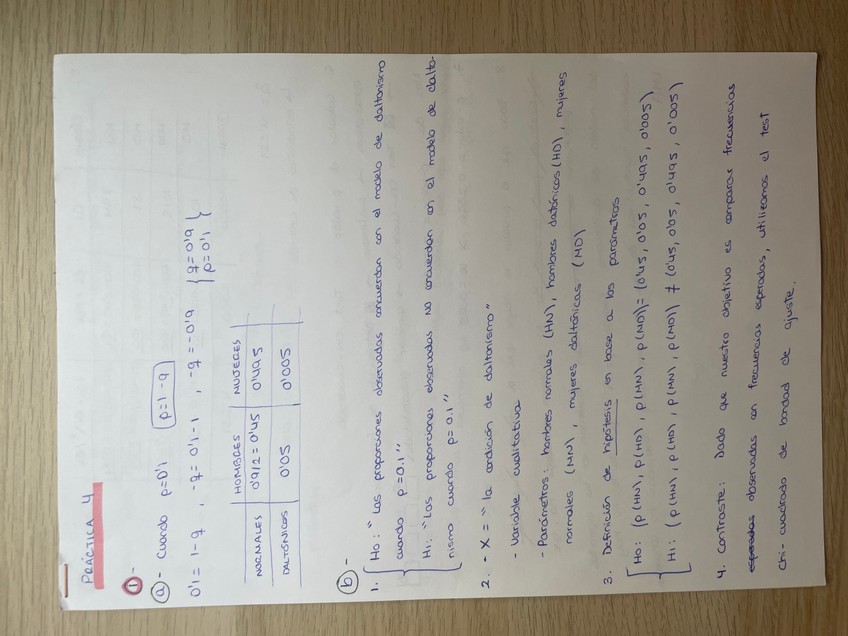 PRÁCTICA 4
1-
a - Cuando p=0'1 p=1-q
0'1 = 1-q , -q = 0'1-1 , -q = -0'9 { q=0'9
p=0'1 }
HOMBRES MUJERES
NORMALES 0'9/2=0'45 0'495
DALTÓNICOS 0'05 0'005
b -
1. { Ho: "Las proporciones observadas concuerdan con el modelo de daltonismo
cuando p=0.1"
H1: "Las proporciones observadas NO concuerdan con el modelo de dalto-
nismo cuando p=0.1"
2. - X = "la condición de daltonismo"
- Variable cualitativa
- Parámetros: hombres normales (HN), hombres daltónicos (HD), mujeres
normales (MN), mujeres daltónicas (MD)
3. Definición de hipótesis en base a los parámetros
{ Ho: (p(HN), p(HD), p(MN), p(MD)) = (0'45, 0'05, 0'495, 0'005)
H1: (p(HN), p(HD), p(MN), p(MD)) ≠ (0'45, 0'05, 0'495, 0'005)
4. Contraste: Dado que nuestro objetivo es comparar frecuencias
esperadas observadas con frecuencias esperadas, utilizamos el test
chi-cuadrado de bondad de ajuste.